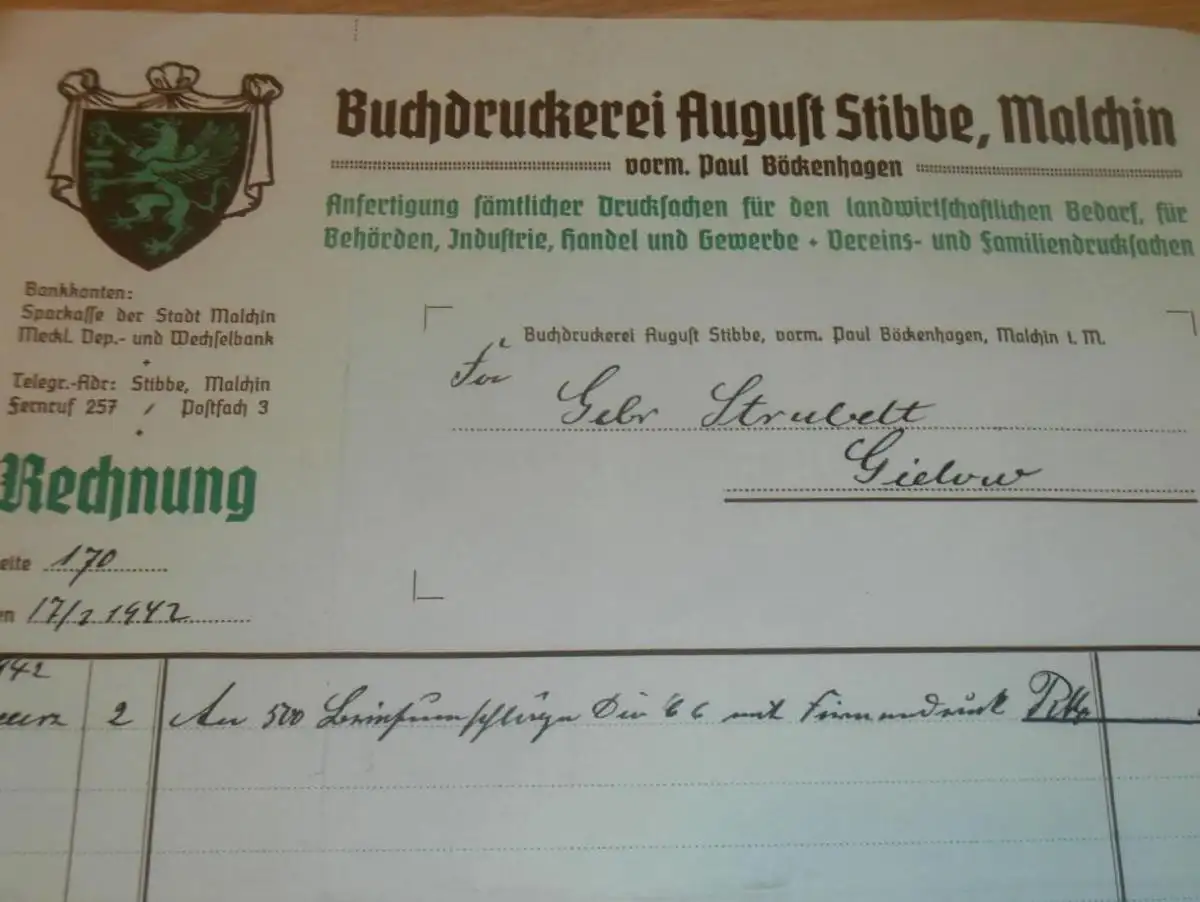 Buchdruckerei August Stibbe, Malchin
vorm. Paul Böckenhagen
Anfertigung sämtlicher Drucksachen für den landwirtschaftlichen Bedarf, für
Behörden, Industrie, Handel und Gewerbe + Vereins- und Familiendrucksachen
Bankkonten:
Sparkasse der Stadt Malchin
Meckl. Dep.- und Wechselbank
Telegr.-Adr: Stibbe, Malchin
Fernruf 257 / Postfach 3
Buchdruckerei August Stibbe, vorm. Paul Böckenhagen, Malchin i. M.
Gebr Strubelt
Gielow
Rechnung
eite 170
en 17/2 1942
942
2 An 500 Briefumschläge Din C6 mit Firmendruck